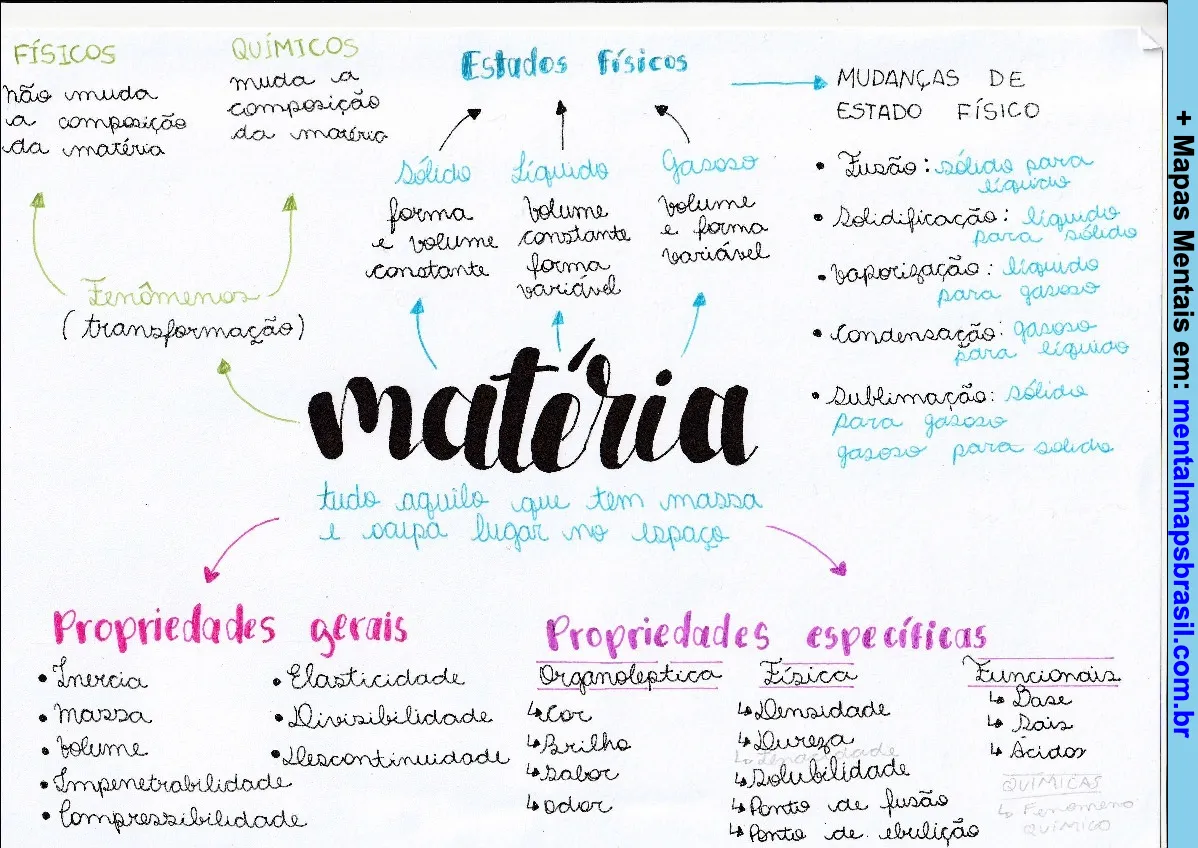 FÍSICOS
não muda
a composição
da matéria
QUÍMICOS
muda a
composição
da matéria
Fenômenos
(transformação)
Estados físicos
Sólido
forma
e volume
constante
Líquido
volume
constante
forma
variável
Gasoso
volume
e forma
variável
MUDANÇAS DE
ESTADO FÍSICO
• Fusão: sólido para
líquido
• Solidificação: líquido
para sólido
• Vaporização: líquido
para gasoso
• Condensação: gasoso
para líquido
• Sublimação: sólido
para gasoso
gasoso para solido
matéria
tudo aquilo que tem massa
e ocupa lugar no espaço
Propriedades gerais
• Inercia
• Massa
• Volume
• Impenetrabilidade
• Compressibilidade
• Elasticidade
• Divisibilidade
• Descontinuidade
Propriedades específicas
Organoleptica
↳ Cor
↳ Brilho
↳ Sabor
↳ odor
Física
↳ Densidade
↳ Dureza
↳ Solubilidade
↳ Ponto de fusão
↳ Ponto de ebulição
Funcionais
↳ Base
↳ Sais
↳ Ácidos
QUÍMICAS
↳ Fenomeno
QUÍMICO
+ Mapas Mentais em: mentalmapsbrasil.com.br